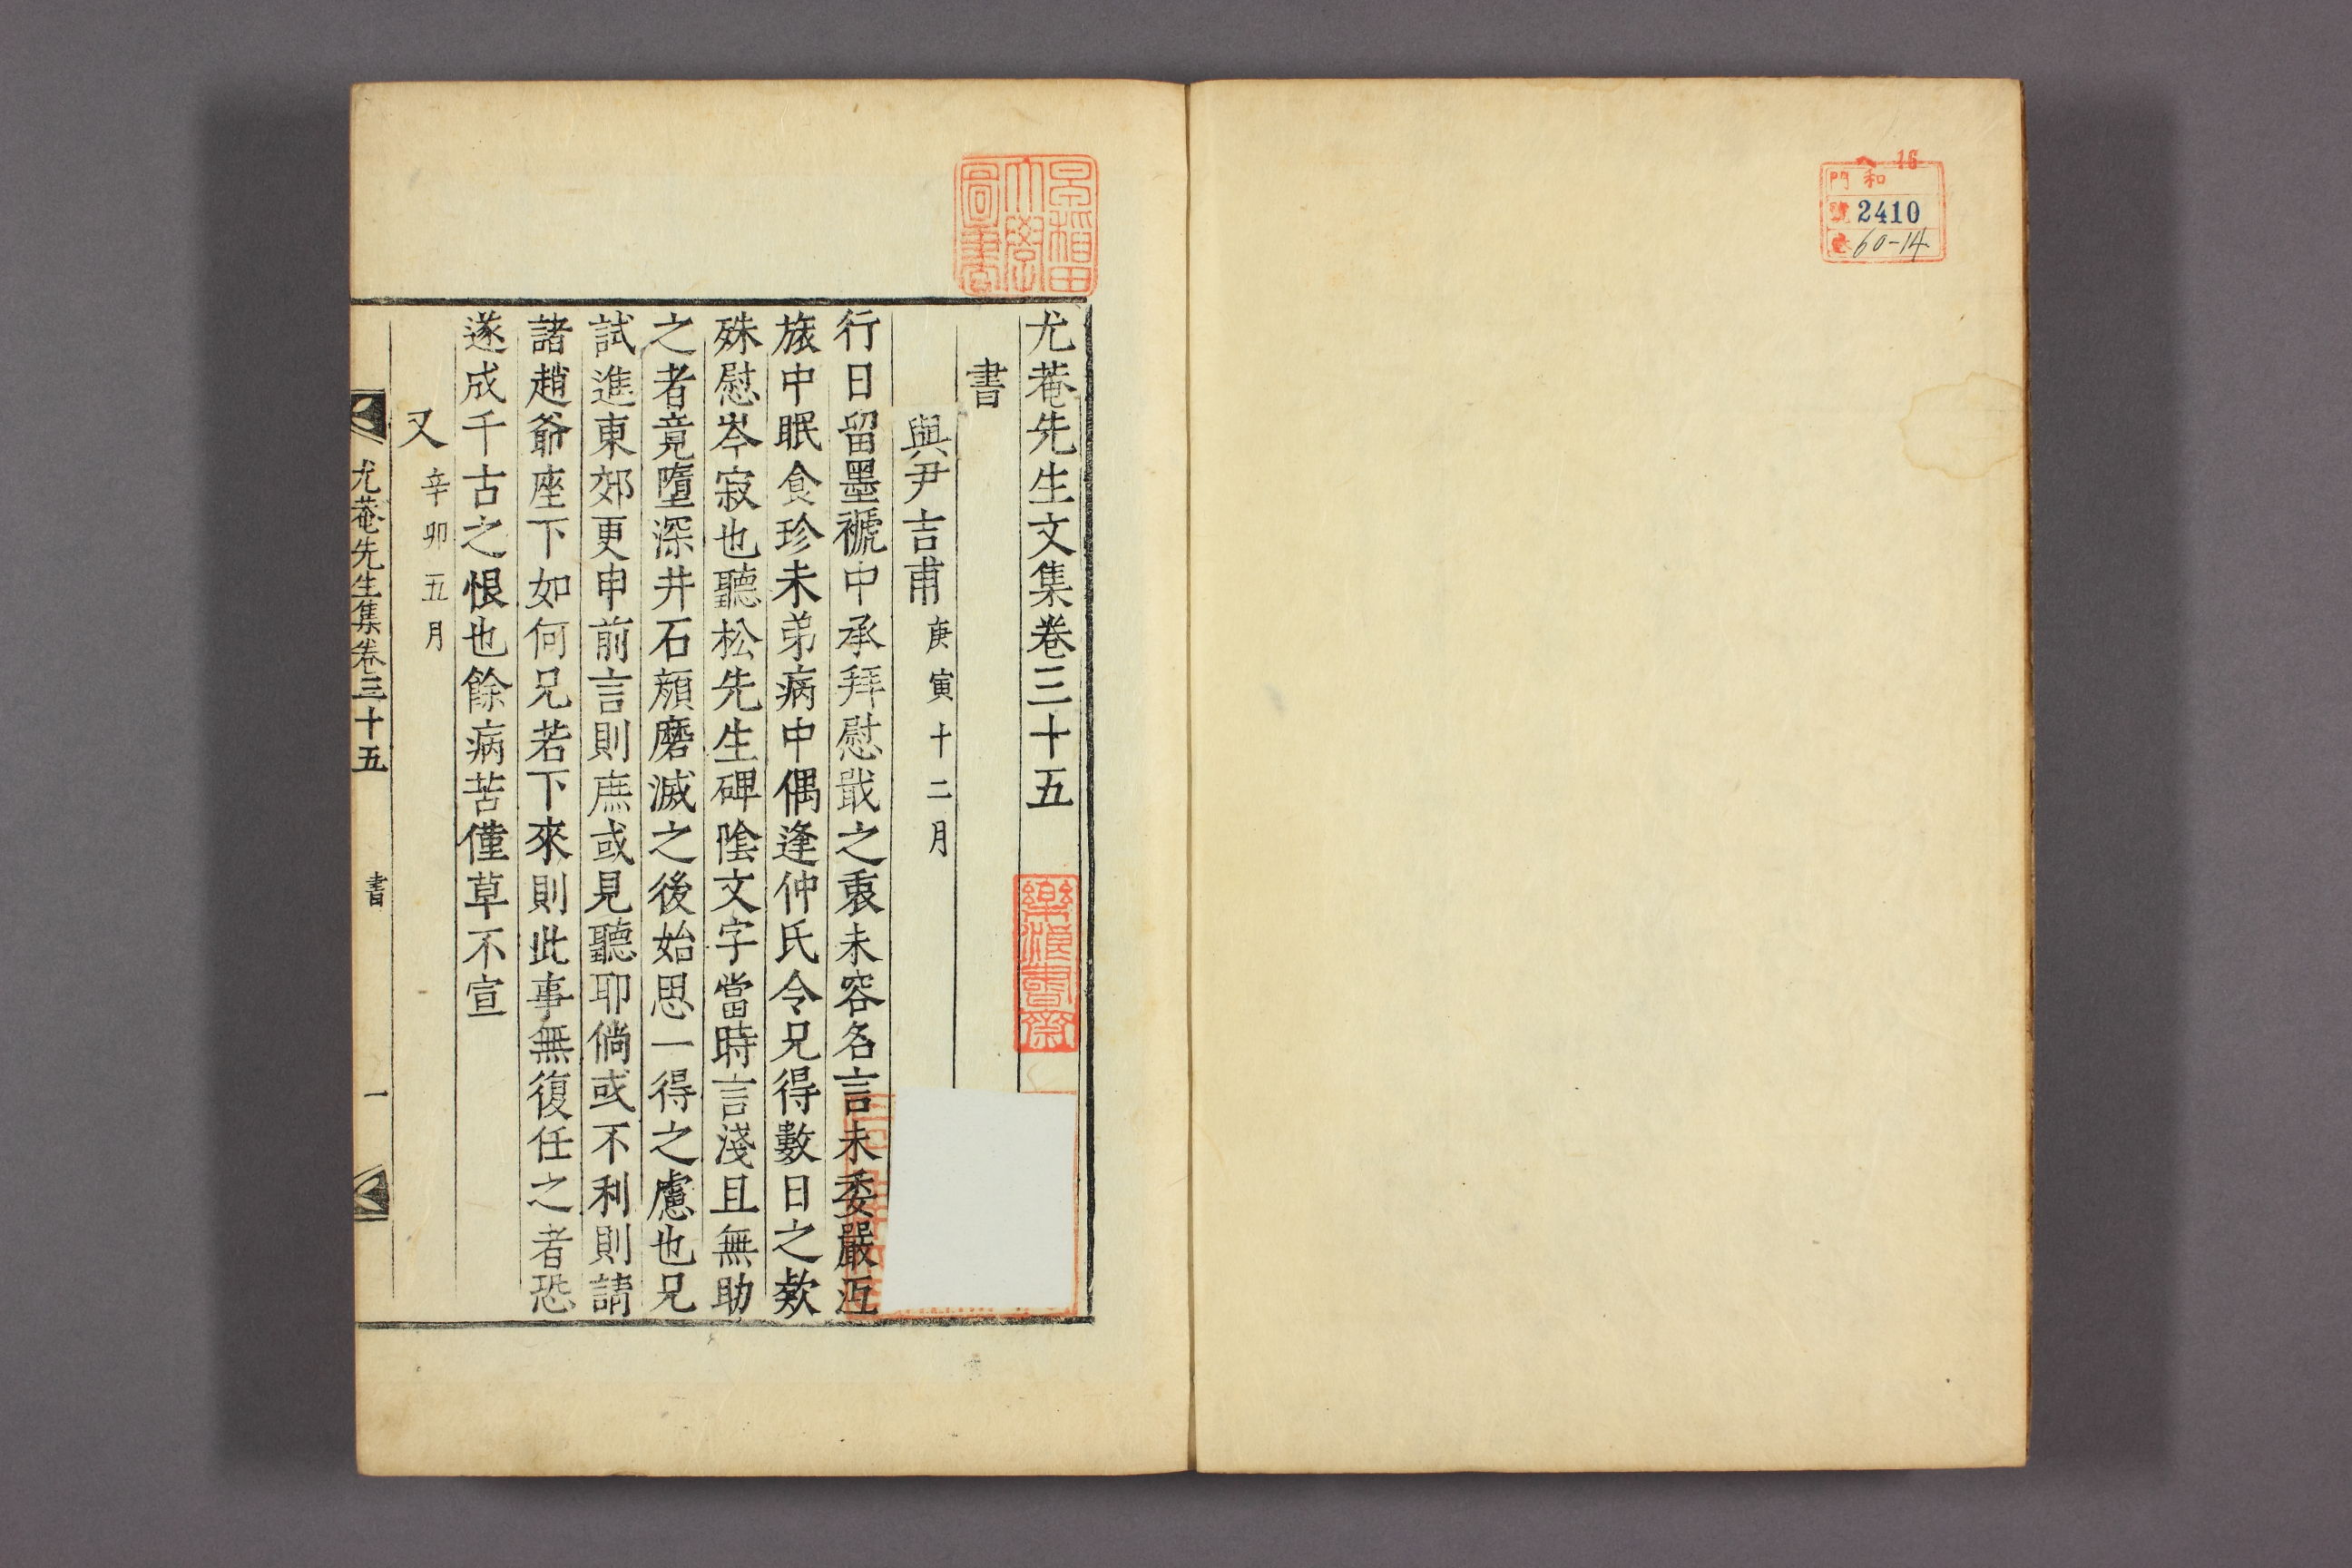 16
和
門
號 2410
60-14
早稲田
大學
圖書
尤菴先生文集卷三十五
書
與尹吉甫 庚寅十二月
行日留墨褫中承拜慰戢之衷未容名言未委嚴沍
旅中眠食珍未弟病中偶逢仲氏令兄得數日之欵
殊慰岑寂也聽松先生碑陰文字當時言淺且無助
之者竟墮深井石顔磨滅之後始思一得之慮也兄
試進東郊更申前言則庶或見聽耶倘或不利則請
諸趙爺座下如何兄若下來則此事無復任之者恐
遂成千古之恨也餘病苦僅草不宣
又 辛卯五月
尤菴先生集卷三十五 書 一